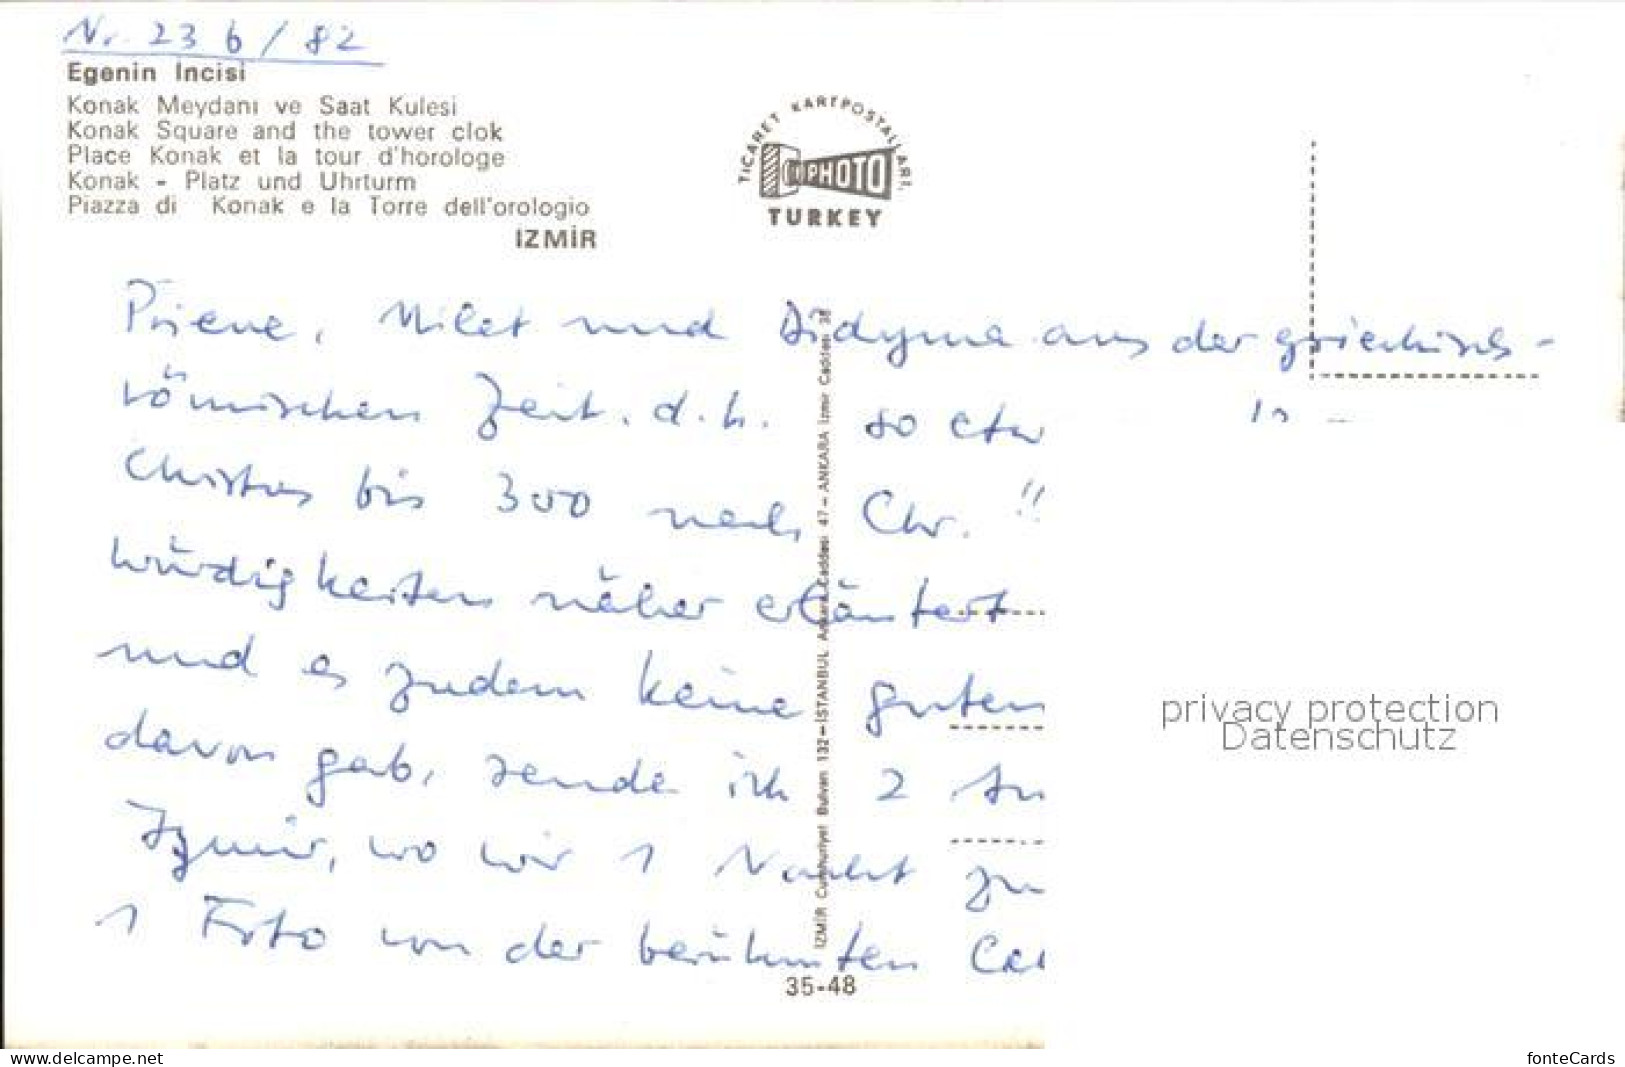 Nr. 236/82
Egenin İncisi
Konak Meydanı ve Saat Kulesi
Konak Square and the tower clok
Place Konak et la tour d'horologe
Konak - Platz und Uhrturm
Piazza di Konak e la Torre dell'orologio
IZMİR
TICARET KARTPOSTALLARI,
PHOTO
TURKEY
Priene, Milet und Didyma aus der griechisch-
römischen Zeit. d.h. so etw
Christus bis 300 nach Chr. !!
würdigkeiten näher erläutert
und es zudem keine guten
davon gab, sende ich 2 An
Izmir, wo wir 1 Nacht zu
1 Foto von der berühmten
IZMİR Cumhuriyet Bulvarı 132-İSTANBUL Ankara Caddesi 47-ANKARA İzmir Caddesi 38
35-48
privacy protection
Datenschutz
www.delcampe.net
fonteCards